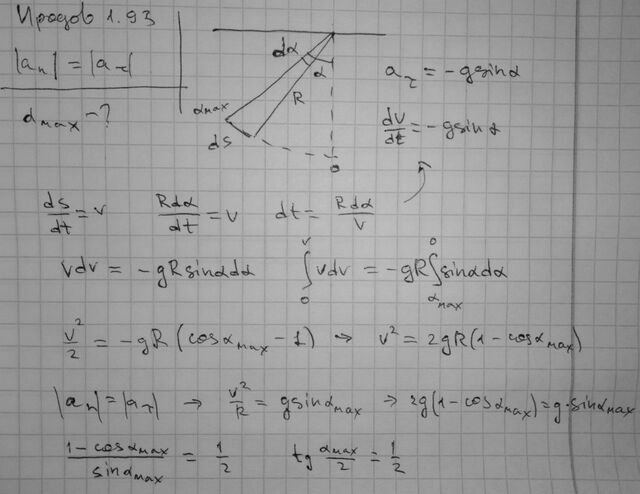 Иродов 1.93
|aₙ| = |a_τ|
α_max - ?
dα
α
R
α_max
ds
0
a_τ = -g sinα
dv/dt = -g sinα
ds/dt = v    Rdα/dt = v    dt = Rdα/v
vdv = -gR sinα dα    ∫₀^v vdv = -gR ∫_{α_max}^0 sinα dα
v²/2 = -gR (cosα_max - 1) → v² = 2gR(1 - cosα_max)
|aₙ| = |a_τ| → v²/R = g sinα_max → 2g(1 - cosα_max) = g·sinα_max
(1 - cosα_max)/(sinα_max) = 1/2    tg α_max/2 = 1/2